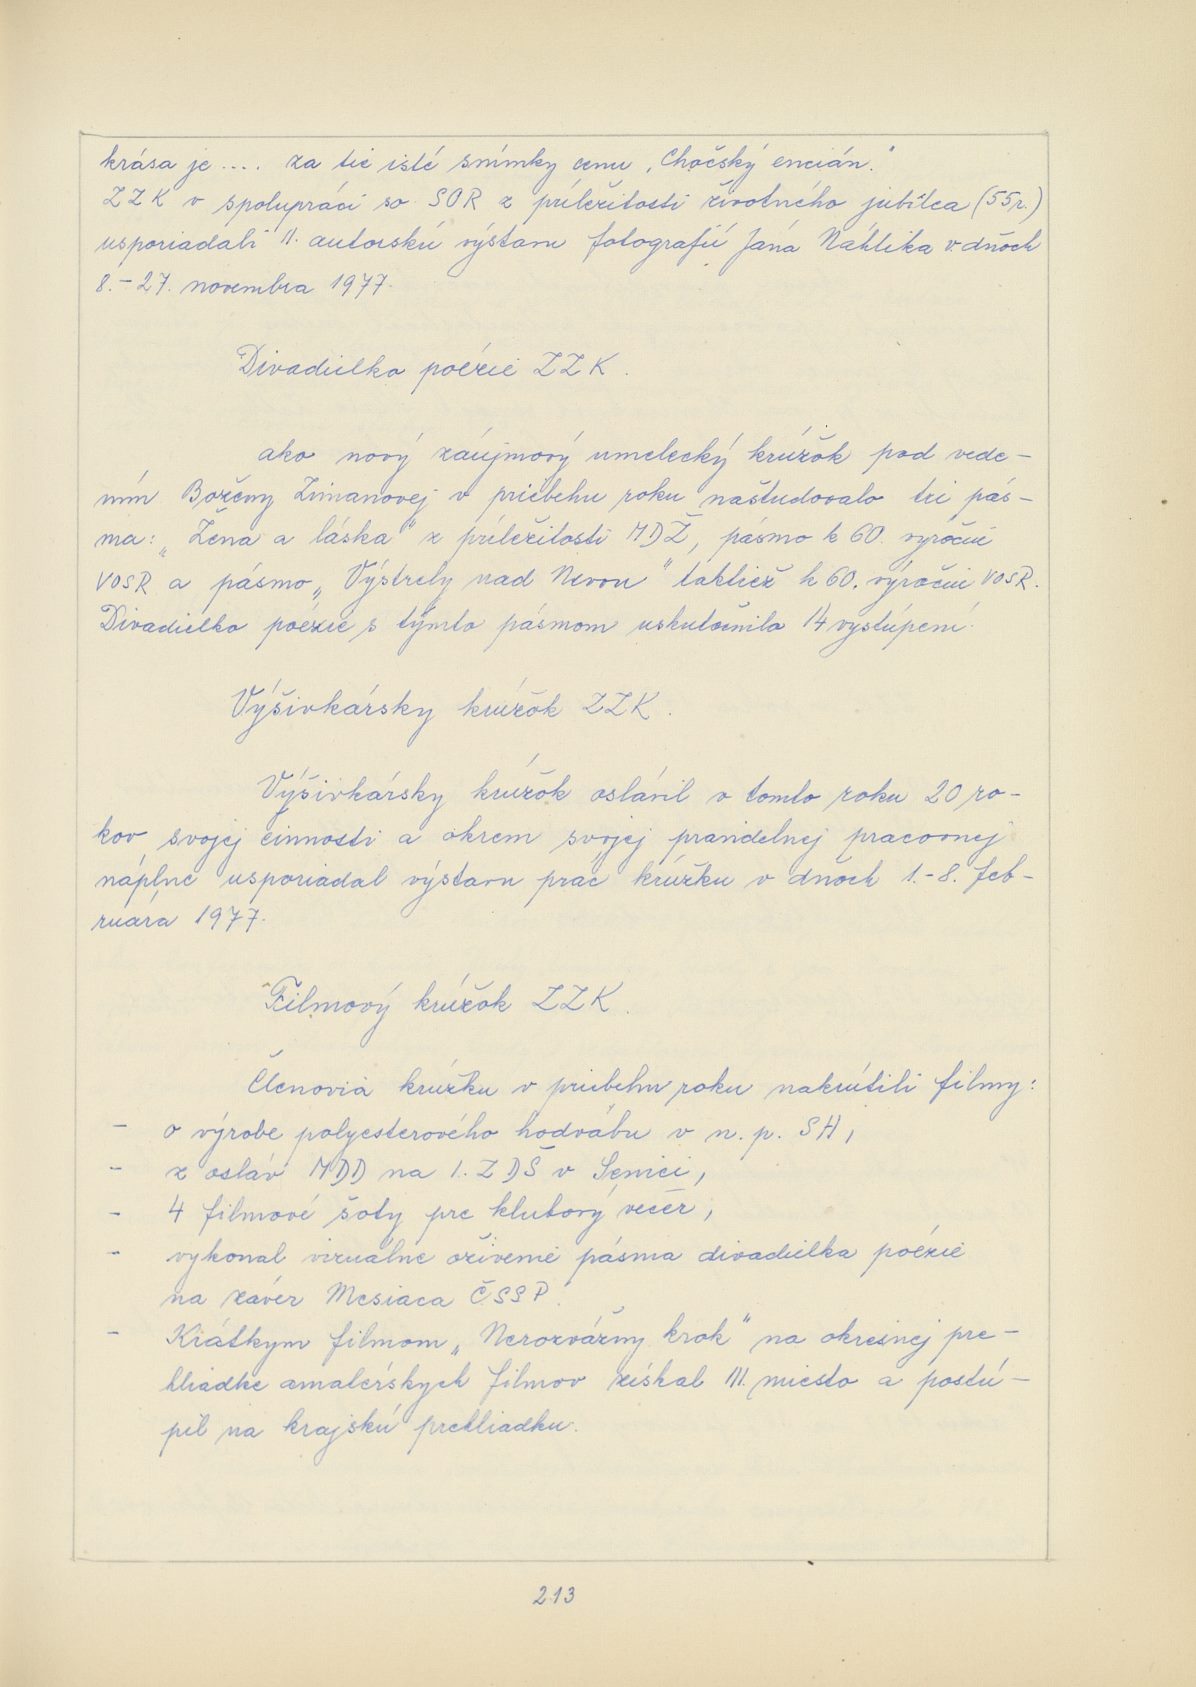 krása je .... za tie isté snímky cenu „Chočský encián."
ZZK v spolupráci so SOR z príležitosti životného jubilea (55 r.)
usporiadali 11. autorskú výstavu fotografií Jána Náhlika v dňoch
8.-27. novembra 1977.
Divadielko poézie ZZK.
ako nový záujmový umelecký krúžok pod vede-
ním Boženy Zimanovej v priebehu roku naštudovalo tri pás-
ma: „Žena a láska" z príležitosti MDŽ, pásmo k 60. výročiu
VOSR a pásmo „Výstrely nad Nevou" taktiež k 60. výročiu VOSR.
Divadielko poézie s týmto pásmom uskutočnilo 14 vystúpení.
Výšivkársky krúžok ZZK.
Výšivkársky krúžok oslávil v tomto roku 20 ro-
kov svojej činnosti a okrem svojej pravidelnej pracovnej
náplne usporiadal výstavu prác krúžku v dňoch 1.-8. feb-
ruára 1977.
Filmový krúžok ZZK.
Členovia krúžku v priebehu roku nakrútili filmy:
- o výrobe polyesterového hodvábu v n. p. SH,
- z osláv MDD na 1. ZDŠ v Senici,
- 4 filmové šoty pre klubový večer,
- vykonal vizuálne oživenie pásma divadielka poézie
na záver Mesiaca ČSSP.
- Krátkym filmom „Nerozvážny krok" na okresnej pre-
hliadke amatérskych filmov získal III. miesto a postú-
pil na krajskú prehliadku.
213